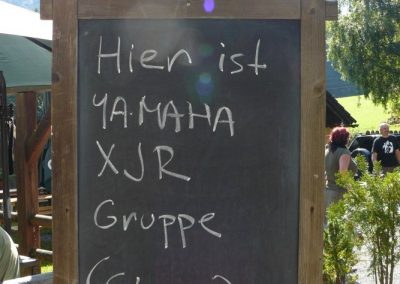 Hier ist
YAMAHA
XJR
Gruppe